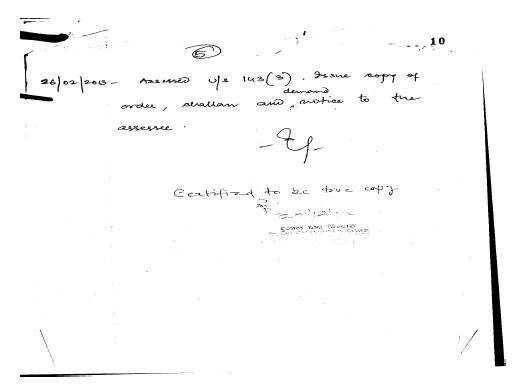 10
5
26/02/2013 - Assessed u/s 143(3). Issue copy of
order, challan and demand notice to the
assessee.
Certified to be true copy